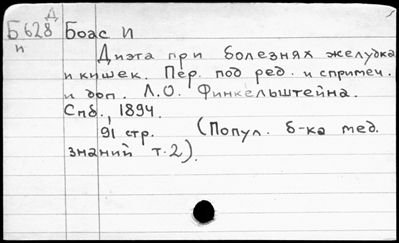 Д
Б628 Боас И
и
Диэта при болезнях желудка
и кишек. Пер. под ред. и с примеч.
и доп. Л.О. Финкельштейна.
Спб., 1894.
91 стр. (Попул. б-ка мед.
знаний т. 2).